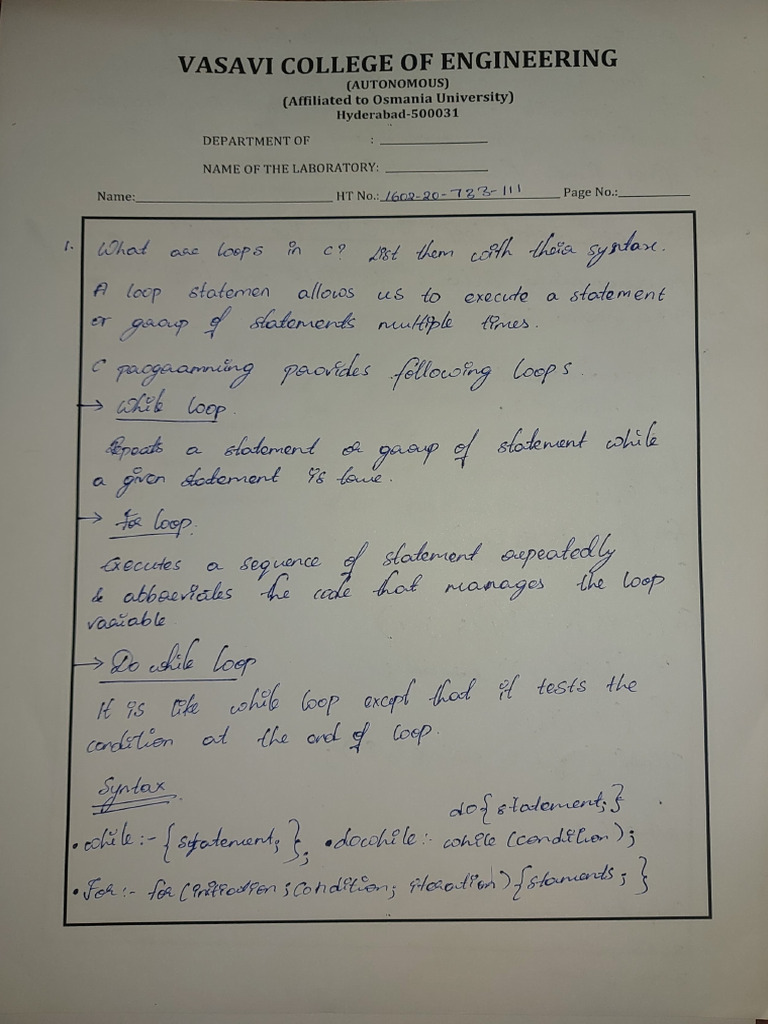 VASAVI COLLEGE OF ENGINEERING
(AUTONOMOUS)
(Affiliated to Osmania University)
Hyderabad-500031
DEPARTMENT OF :
NAME OF THE LABORATORY:
Name: HT No.: 1602-20-733-111 Page No.:
1. What are loops in C? List them with their syntax.
A loop statemen allows us to execute a statement
or group of statements multiple times.
C programming provides following loops.
→ While loop.
Repeats a statement or group of statement while
a given statement is true.
→ For loop.
Executes a sequence of statement repeatedly
& abbreviates the code that manages the loop
variable
→ Do while loop
It is like while loop except that it tests the
condition at the end of loop.
Syntax
do{statement;}
• while:- {statement;}; • dowhile:- while (condition);
• For:- for(initiation; condition; iteration){staments;}